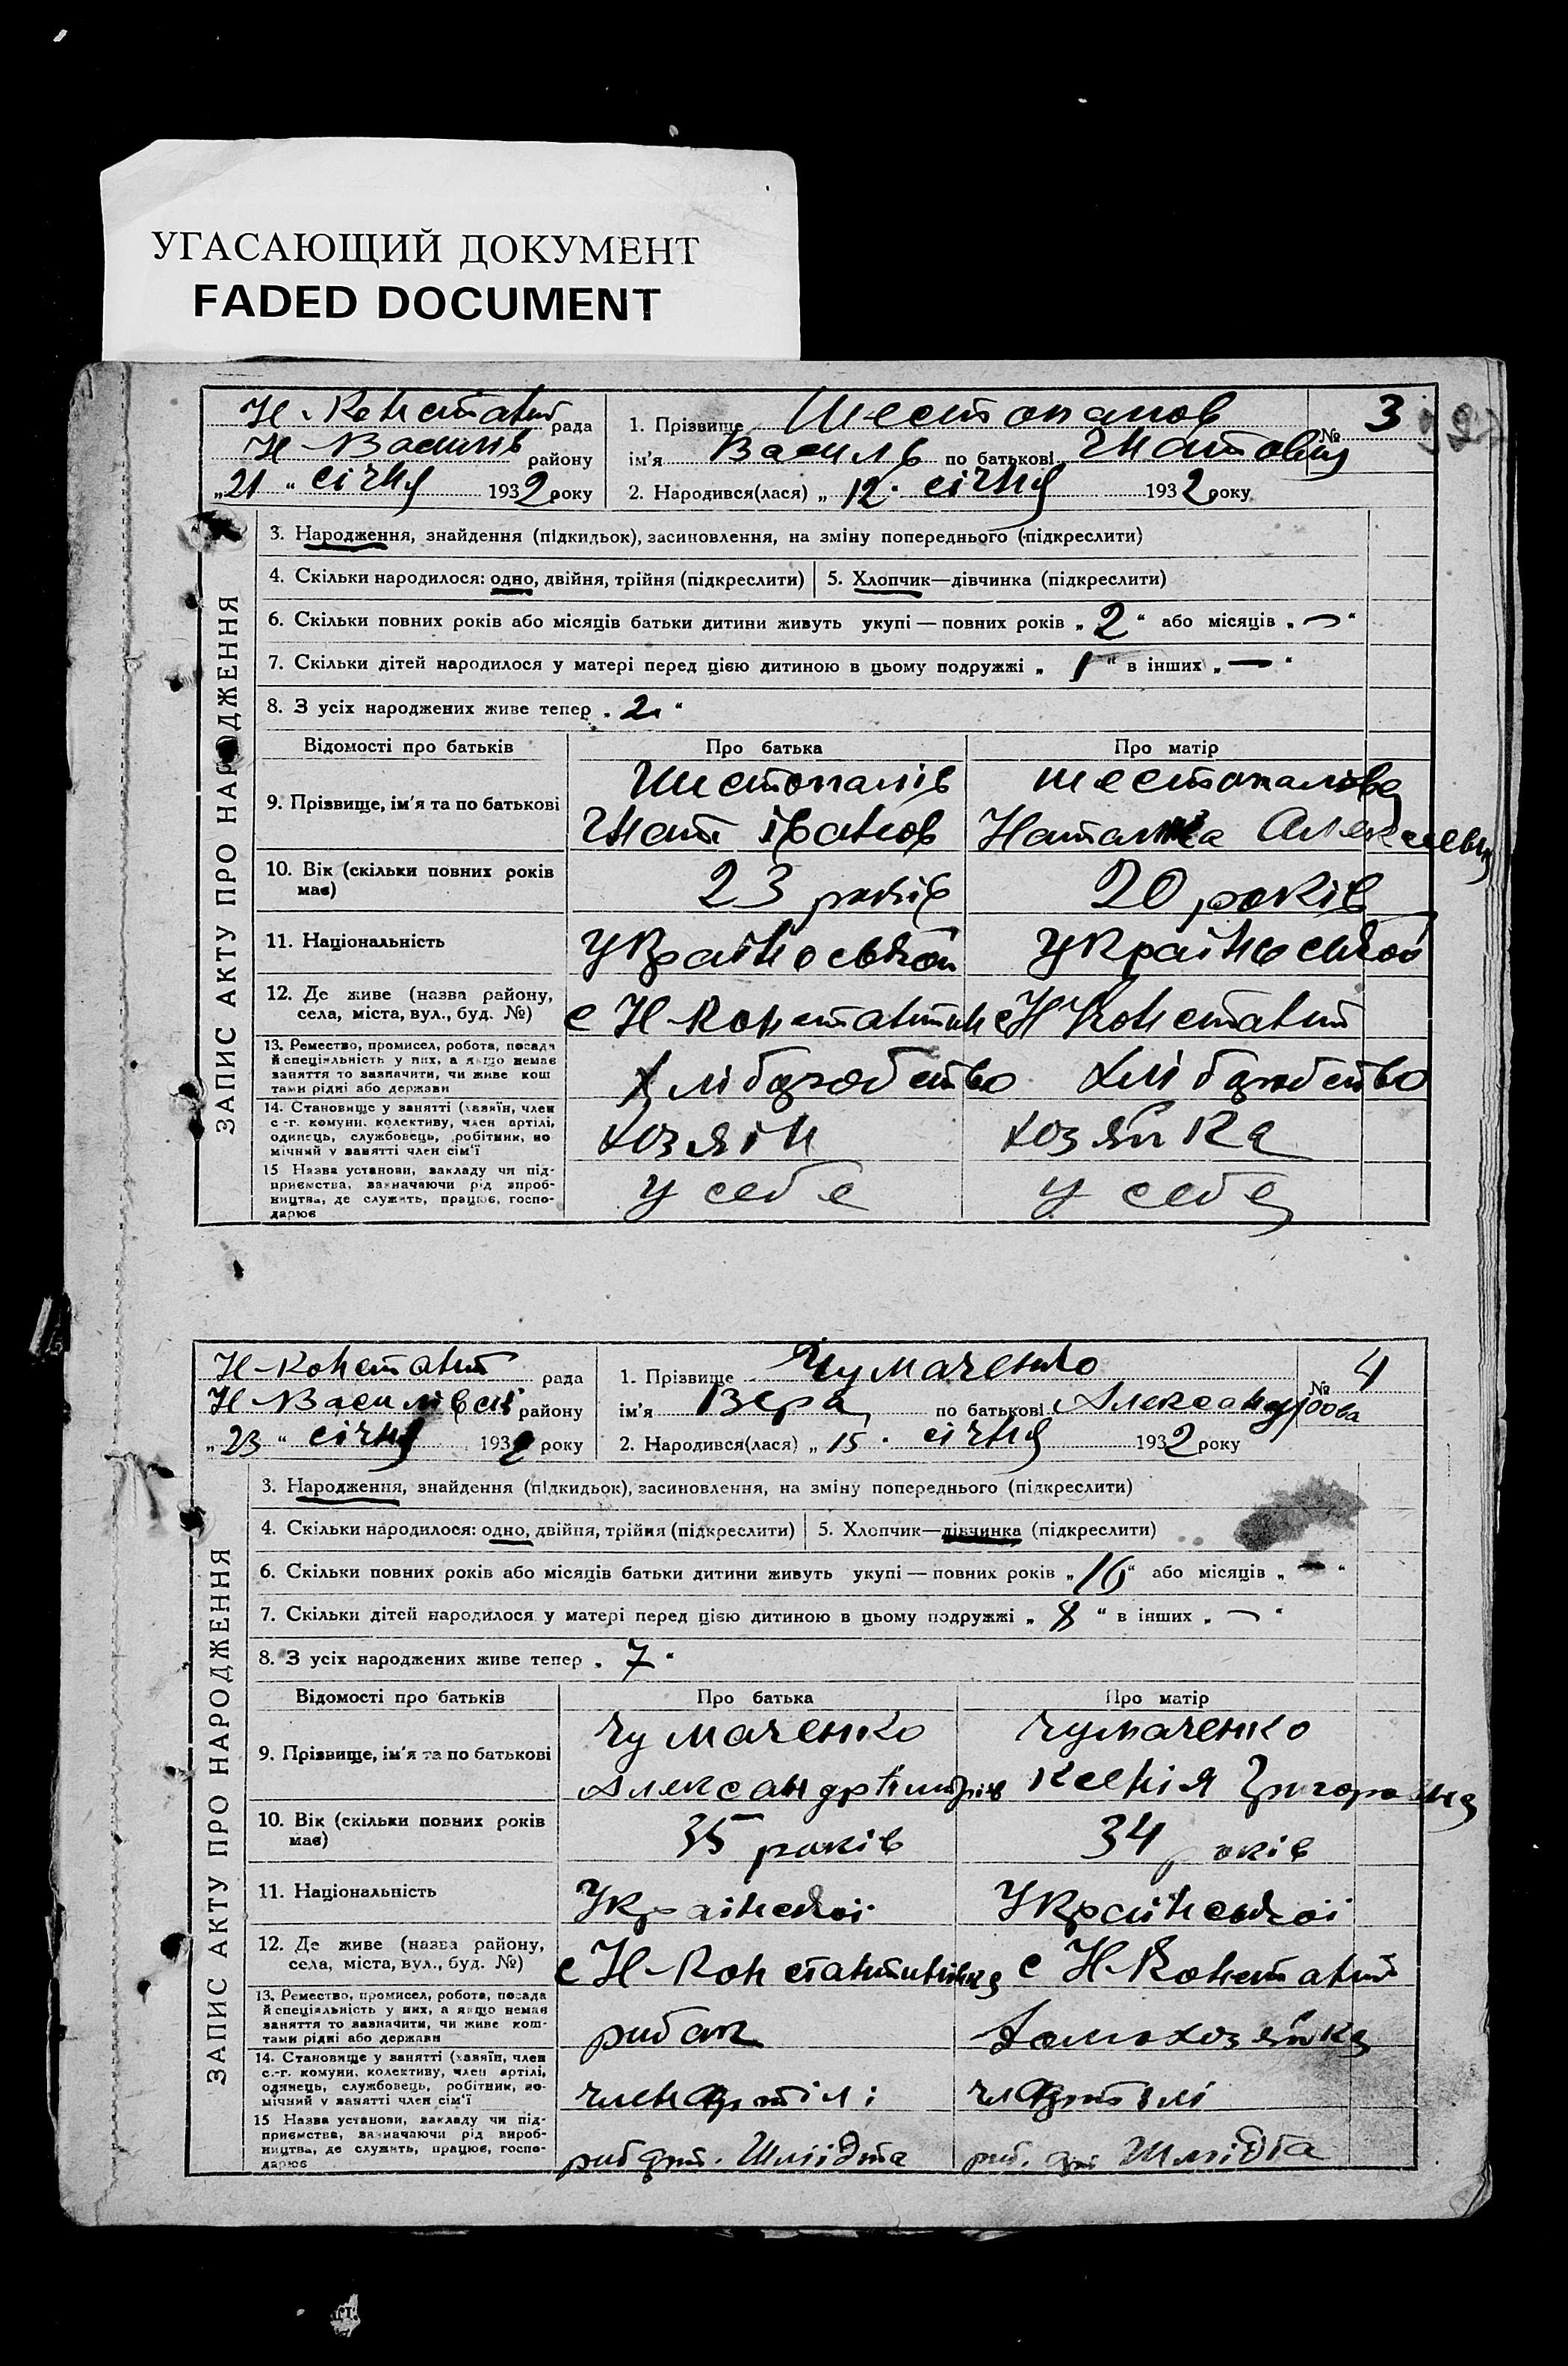 УГАСАЮЩИЙ ДОКУМЕНТ
FADED DOCUMENT
ЗАПИС АКТУ ПРО НАРОДЖЕННЯ
Н-Констант рада
Н Василів району
„21“ січня 1932 року
1. Прізвище Шестопалов № 3
ім'я Василь по батькові Гнатович
2. Народився(лася) „12“ січня 1932 року
3. Народження, знайдення (підкидьок), засиновлення, на зміну попереднього (підкреслити)
4. Скільки народилося: одно, двійня, трійня (підкреслити) 5. Хлопчик—дівчинка (підкреслити)
6. Скільки повних років або місяців батьки дитини живуть укупі — повних років „2“ або місяців „—“
7. Скільки дітей народилося у матері перед цією дитиною в цьому подружжі „1“ в інших „—“
8. З усіх народжених живе тепер „2“
Відомості про батьків Про батька Про матір
9. Прізвище, ім'я та по батькові
Шестопалів Шестопалова
Гнат Іванов Наталка
10. Вік (скільки повних років має) 23 років 20 років
11. Національність Української Української
12. Де живе (назва району, села, міста, вул., буд. №) с Н-Константин с Н Констант
13. Ремество, промисел, робота, посада й спеціяльність у них, а якщо немає заняття то зазначити, чи живе коштами рідні або держави хліборобство хліборобство
14. Становище у занятті (хазяїн, член с.-г. комуни, колективу, член артілі, одинець, службовець, робітник, помічний у занятті член сім'ї хозяін хозяйка
15 Назва установи, закладу чи підприємства, зазначаючи рід виробництва, де служить, працює, господарює у себе у себе
ЗАПИС АКТУ ПРО НАРОДЖЕННЯ
Н-Констант рада
Н Василівськ району
„23“ січня 1932 року
1. Прізвище Чумаченко № 4
ім'я Вера по батькові Александрова
2. Народився(лася) „15“ січня 1932 року
3. Народження, знайдення (підкидьок), засиновлення, на зміну попереднього (підкреслити)
4. Скільки народилося: одно, двійня, трійня (підкреслити) 5. Хлопчик—дівчинка (підкреслити)
6. Скільки повних років або місяців батьки дитини живуть укупі — повних років „16“ або місяців „—“
7. Скільки дітей народилося у матері перед цією дитиною в цьому подружжі „8“ в інших „—“
8. З усіх народжених живе тепер „7“
Відомості про батьків Про батька Про матір
9. Прізвище, ім'я та по батькові
Чумаченко Чумаченко
Александр Ксенія Григоровна
10. Вік (скільки повних років має) 35 років 34 років
11. Національність Української Української
12. Де живе (назва району, села, міста, вул., буд. №) с Н-Константинівка с Н-Констант
13. Ремество, промисел, робота, посада й спеціяльність у них, а якщо немає заняття то зазначити, чи живе коштами рідні або держави рибак домохозяйка
14. Становище у занятті (хазяїн, член с.-г. комуни, колективу, член артілі, одинець, службовець, робітник, помічний у занятті член сім'ї член артілі чл артілі
15 Назва установи, закладу чи підприємства, зазначаючи рід виробництва, де служить, працює, господарює риб арт. Шмідта риб. арт Шмідта